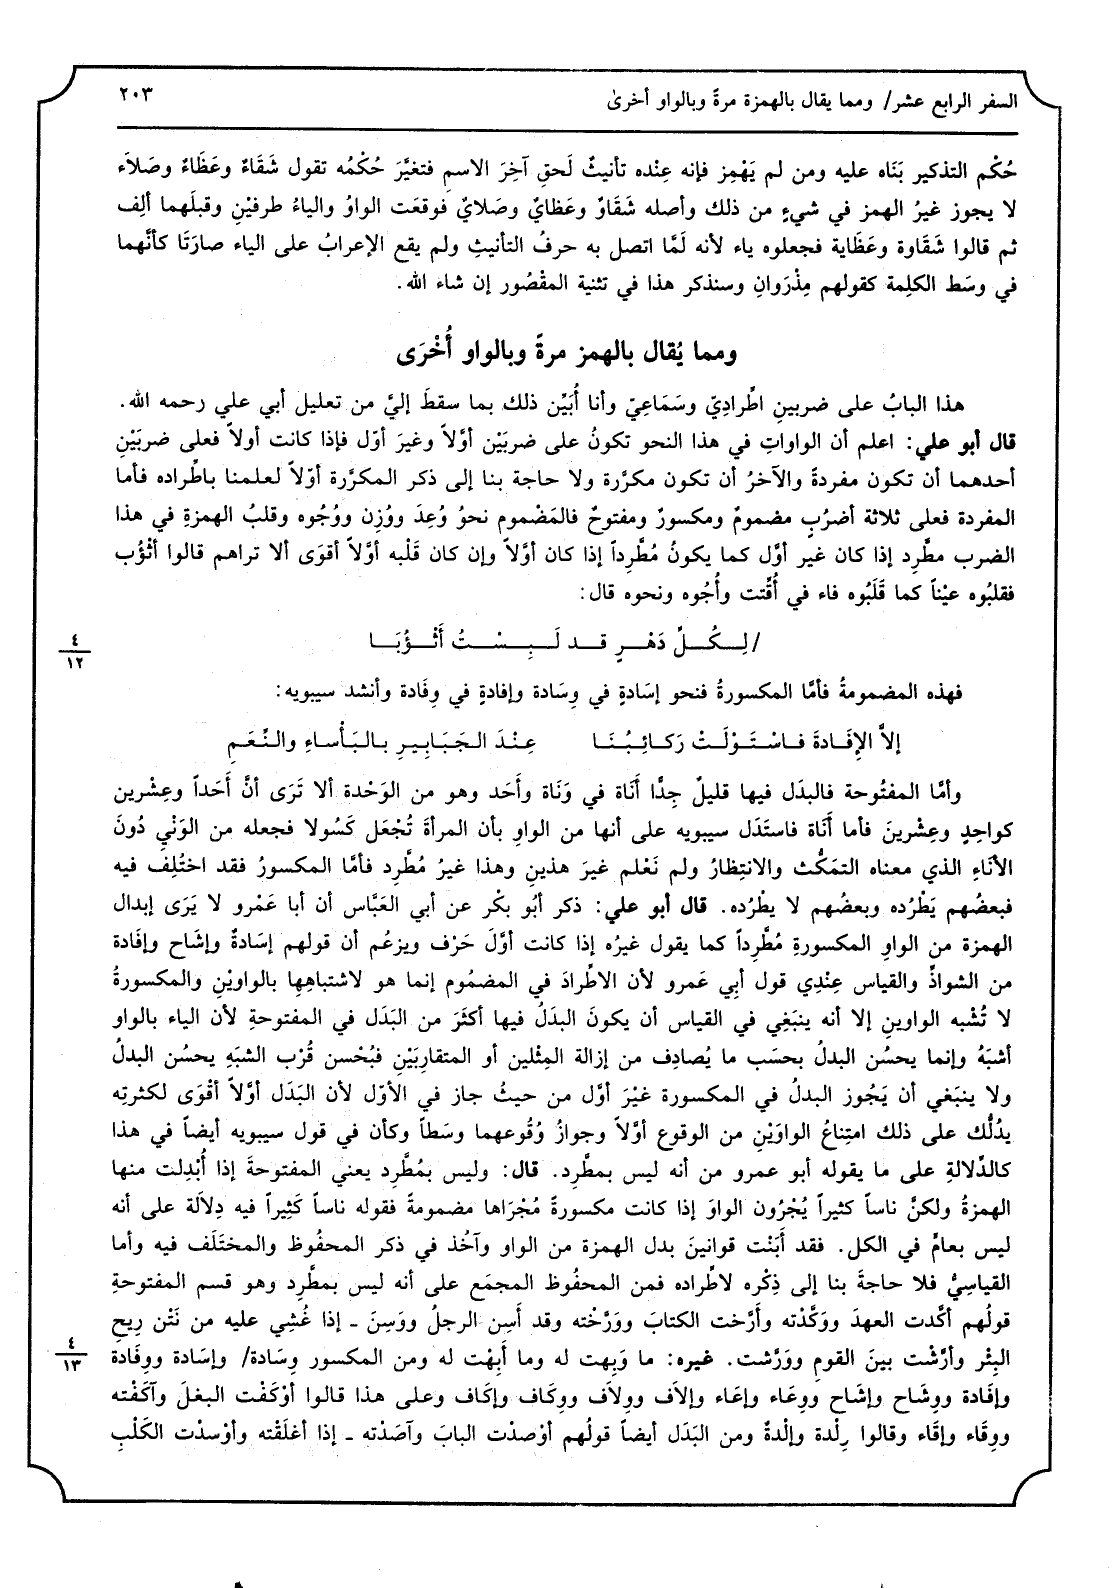 السفر الرابع عشر/ ومما يقال بالهمزة مرةً وبالواو أخرىٰ
٢٠٣
حُكْم التذكير بَنَاه عليه ومن لم يَهْمِز فإنه عِنْده تأنيثٌ لَحقِ آخِرَ الاسمِ فتغيَّرَ حُكْمُه تقول شَقَاءٌ وعَظَاءٌ وصَلاَء
لا يجوز غيرُ الهمز في شيءٍ من ذلك وأصله شَقَاوٌ وعَظايٌ وصَلايٌ فوقعَت الواوُ والياءُ طرفيْنِ وقبلَهما ألِف
ثم قالوا شَقَاوة وعَظَاية فجعلوه ياء لأنه لَمَّا اتصل به حرفُ التأنيثِ ولم يقع الإعرابُ على الياء صارَتَا كأنَّهما
في وسَط الكلِمة كقولهم مِذْرَوانِ وسنذكر هذا في تثنية المقْصُور إن شاء الله.
ومما يُقال بالهمز مرةً وبالواو أُخْرَى
هذا البابُ على ضربينِ اطِّرادِيّ وسَمَاعِيّ وأنا أُبَيِّن ذلك بما سقطَ إليَّ من تعليل أبي علي رحمه الله.
قال أبو علي: اعلم أن الواواتِ في هذا النحو تكونُ على ضربَيْن أوَّلاً وغيرَ أوّل فإذا كانت أولاً فعلى ضربَيْنِ
أحدهما أن تكون مفردةً والآخرُ أن تكون مكرَّرة ولا حاجة بنا إلى ذكر المكرَّرة أوّلاً لعلمنا باطِّراده فأما
المفردة فعلى ثلاثة أضرُبٍ مضمومٌ ومكسورٌ ومفتوحٌ فالمَضْموم نحوُ وُعِدَ وَوُزِن ووُجُوه وقلبُ الهمزةِ في هذا
الضرب مطَّرِد إذا كان غير أوَّل كما يكونُ مُطَّرِداً إذا كان أوَّلاً وإن كان قَلْبه أوَّلاً أقوَى ألا تراهم قالوا أثْؤُب
فقلبُوه عيْناً كما قَلَبُوه فاء في أُقِّتت وأُجُوه ونحوه قال:
/لِـكُـلِّ دَهْـرٍ قـد لَـبِـسْـتُ أَثْـؤُبَـا
٤
١٢
فهذه المضمومةُ فأمَّا المكسورةُ فنحو إسَادةٍ في وِسَادة وإفادةٍ في وِفَادة وأنشد سيبويه:
إلاَّ الإِفَـادةَ فـاسْـتَـوْلَـتْ رَكـائِـبُـنَـا عِـنْـدَ الـجَـبَـابِـيـرِ بـالـبَـأْسـاءِ والـنِّـعَـمِ
وأمَّا المفتُوحة فالبدَل فيها قليلٌ جِدًّا أَنَاة في وَنَاة وأَحَد وهو من الوَحْدة ألا تَرَى أنَّ أَحَداً وعِشْرين
كواحِدٍ وعِشْرينَ فأما أَنَاة فاستَدَل سيبويه على أنها من الواوِ بأن المرأةَ تُجْعَل كَسُولا فجعله من الوَنْيِ دُونَ
الأنَاءِ الذي معناه التمَكُّث والانتِظارُ ولم نَعْلم غيرَ هذينِ وهذا غيرُ مُطَّرِد فأمَّا المكسورُ فقد اختُلِف فيه
فبعضُهم يَطْرُده وبعضُهم لا يطْرُده. قال أبو علي: ذكر أبُو بكْر عن أبي العَبَّاس أن أبا عَمْرو لا يَرَى إبدال
الهمزة من الواوِ المكسورةِ مُطَّرِداً كما يقول غيرُه إذا كانت أوَّلَ حَرْف ويزعُم أن قولهم إسَادةٌ وإشَاح وإفَادة
من الشواذِّ والقياس عِنْدِي قول أبِي عَمرو لأن الاطِّرادَ في المضمُوم إنما هو لاشتباهِهِا بالواويْنِ والمكسورةُ
لا تُشْبه الواوينِ إلا أنه ينبَغِي في القياس أن يكونَ البدَلُ فيها أكثَرَ من البَدَل في المفتوحةِ لأن الياء بالواو
أشبَهُ وإنما يحسُن البدلُ بحسَب ما يُصادِف من إزالة المِثْلين أو المتقاربَيْنِ فبُحْسن قُرْب الشبَهِ يحسُن البدلُ
ولا ينبَغي أن يَجُوز البدلُ في المكسورة غيْرَ أول من حيثُ جاز في الأوّل لأن البَدَل أوَّلاً أقْوَى لكثرتِه
يدُلُّك على ذلك امتِناعُ الواوَيْن من الوقوع أوَّلاً وجوازُ وُقُوعهما وسَطاً وكأن في قول سيبويه أيضاً في هذا
كالدِّلالةِ على ما يقوله أبو عمرو من أنه ليس بمطَّرِد. قال: وليس بمُطَّرِد يعني المفتوحةَ إذا أُبْدِلت منها
الهمزةُ ولكنَّ ناساً كثيراً يُجْرُون الواوَ إذا كانت مكسورةً مُجْرَاها مضمومةً فقوله ناساً كَثِيراً فيه دِلاَلة على أنه
ليس بعامٍّ في الكل. فقد أَبَنْت قوانينَ بدل الهمزة من الواو وآخُذ في ذكر المحفُوظ والمختَلَف فيه وأما
القياسِيُّ فلا حاجةَ بنا إلى ذِكْره لاطِّراده فمن المحفُوظ المجمَع على أنه ليس بمطَّرِد وهو قسم المفتوحةِ
قولُهم أكَّدت العهدَ ووَكَّدْته وأَرَّخت الكتابَ ووَرَّخْته وقد أَسِن الرجلُ ووَسِنَ ـ إذا غُشِي عليه من نَتْن رِيحِ
البِئْر وأرَّشْت بينَ القومِ ووَرَّشت. غيره: ما وَبِهت له وما أَبِهْت له ومن المكسور وِسَادة/ وإسَادة ووِفَادة
٤
١٣
وإفَادة ووِشَاح وإشَاح ووِعَاء وإعَاء وإلاَف ووِلاَف ووِكَاف وإكَاف وعلى هذا قالوا أوْكَفْت البغلَ وآكَفْته
ووِقَاء وإقَاء وقالوا رِلْدة وإلْدةٌ ومن البَدَل أيضاً قولُهم أوْصَدْت البابَ وآصَدْته ـ إذا أغلَقْته وأوْسدْت الكَلْبِ